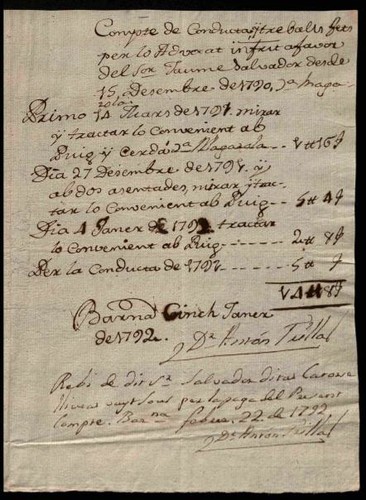 Compte de Conducta, y treballs fets
per lo Advocat infrit a favor
del Sor Jaume Salvador desde
15, Desembre de 1790,
Primo 14 Mars de 1791. mirar
y tractar lo Convenient ab
Puig y Cerdó
Dia 27 Desembre de 1791. y
ab dos asentades, mirar, y trac-
tar lo Convenient ab Puig ---- 5 ## 4 ʃ
Dia 4 Janer de 1792 tractar
lo Convenient ab Puig ------ 2 ## 8 ʃ
Per la Conducta de 1791 ---- 5 ## ʃ
Barna Cinch Janer
de 1792.
Dr Anton
Rebi de dit Sr Salvador ditas Catorse
lliuras vuyt sous per la paga del Present
Compte. Barna febrer 22 de 1792
Dr Anton